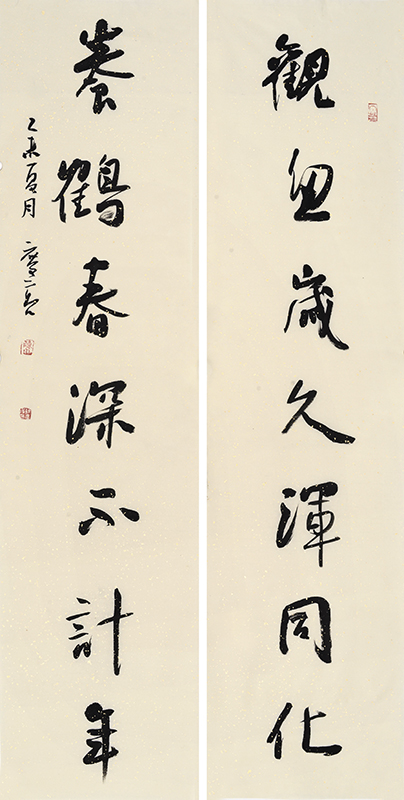 觀魚歲久渾同化
養鶴春深不計年
乙未夏月